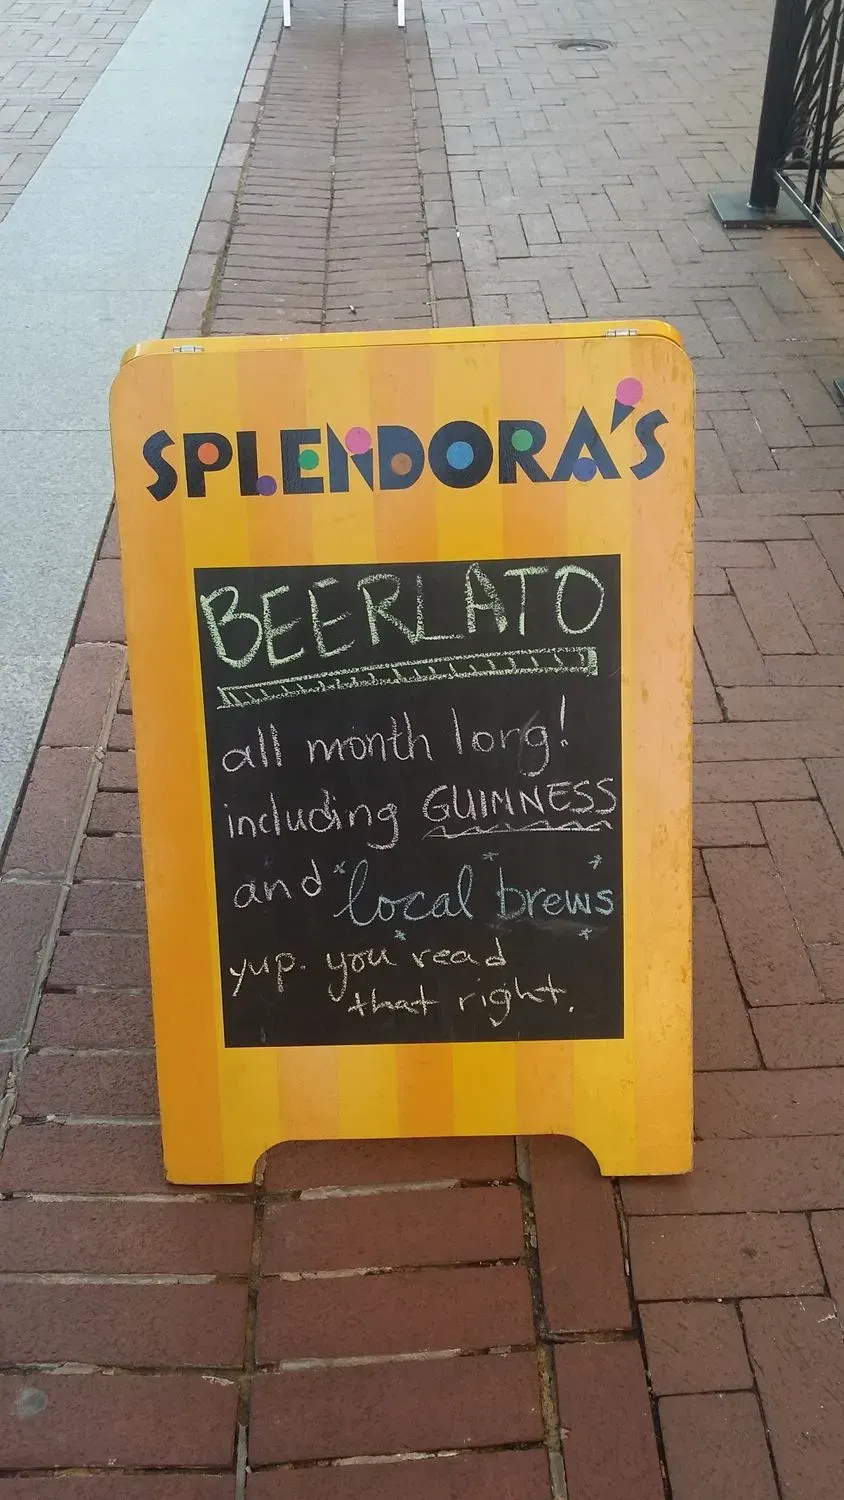 SPLENDORA'S
BEERLATO
all month long!
including GUINNESS
and local brews
yup. you read
that right.